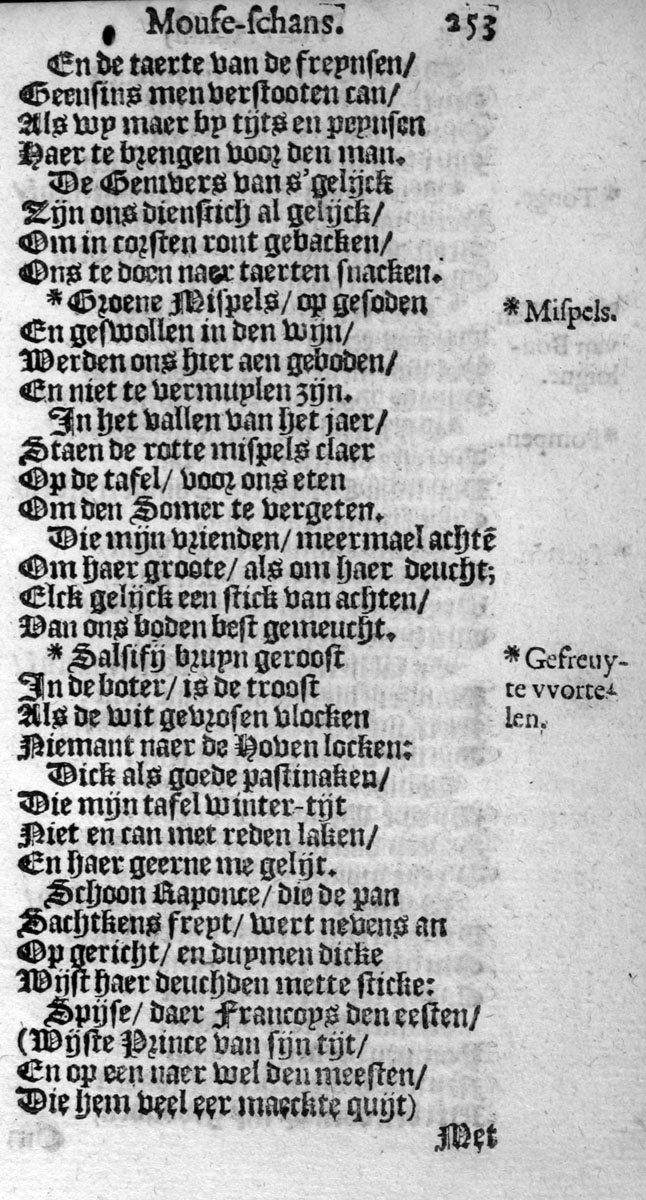 Mouse-schans. 253
En de taerte van de freynsen/
Geensins men verstooten can/
Als wy maer by tijts en peynsen
Haer te brengen voor den man.
De Genivers van s'gelijck
Zijn ons dienstich al gelijck/
Om in corsten ront gebacken/
Ons te doen naer taerten snacken.
*Groene Mispels/ op gesoden
*Mispels.
En geswollen in den wijn/
Werden ons hier aen geboden/
En niet te vermuylen zijn.
In het vallen van het jaer/
Staen de rotte mispels claer
Op de tafel/ voor ons eten
Om den Somer te vergeten.
Die mijn vrienden/ meermael achtē
Om haer groote/ als om haer deucht;
Elck gelijck een stick van achten/
Van ons boden best gemeucht.
* Salsifij bruyn geroost
*Gefreuy-
In de boter/ is de troost
te vvorte-
Als de wit gevrosen vlocken
len.
Niemant naer de Hoven locken:
Dick als goede pastinaken/
Die mijn tafel winter-tijt
Niet en can met reden laken/
En haer geerne me gelijt.
Schoon Raponce/ die de pan
Sachtkens freyt/ wert nevens an
Op gericht/ en duymen dicke
Wijst haer deuchden mette sticke:
Spijse/ daer Francoys den eesten/
(Wijste Prince van sijn tijt/
En op een naer wel den meesten/
Die hem veel eer maeckte quijt)
Met